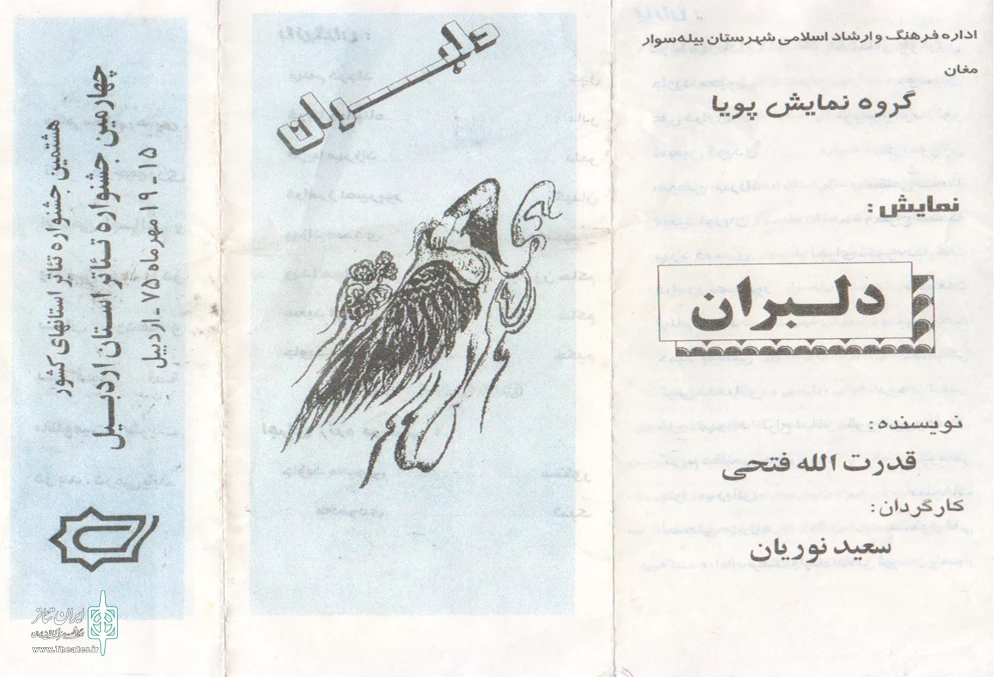 اداره فرهنگ و ارشاد اسلامی شهرستان بیله سوار
مغان
گروه نمایش پویا
نمایش :
دلبران
نویسنده :
قدرت الله فتحی
کارگردان :
سعید نوریان
دلبران
هشتمین جشنواره تئاتر استانهای کشور
چهارمین جشنواره تئاتر استان اردبیل
۱۵ - ۱۹ - مهرماه ۷۵ - اردبیل
ایران تئاتر
www.Theater.ir